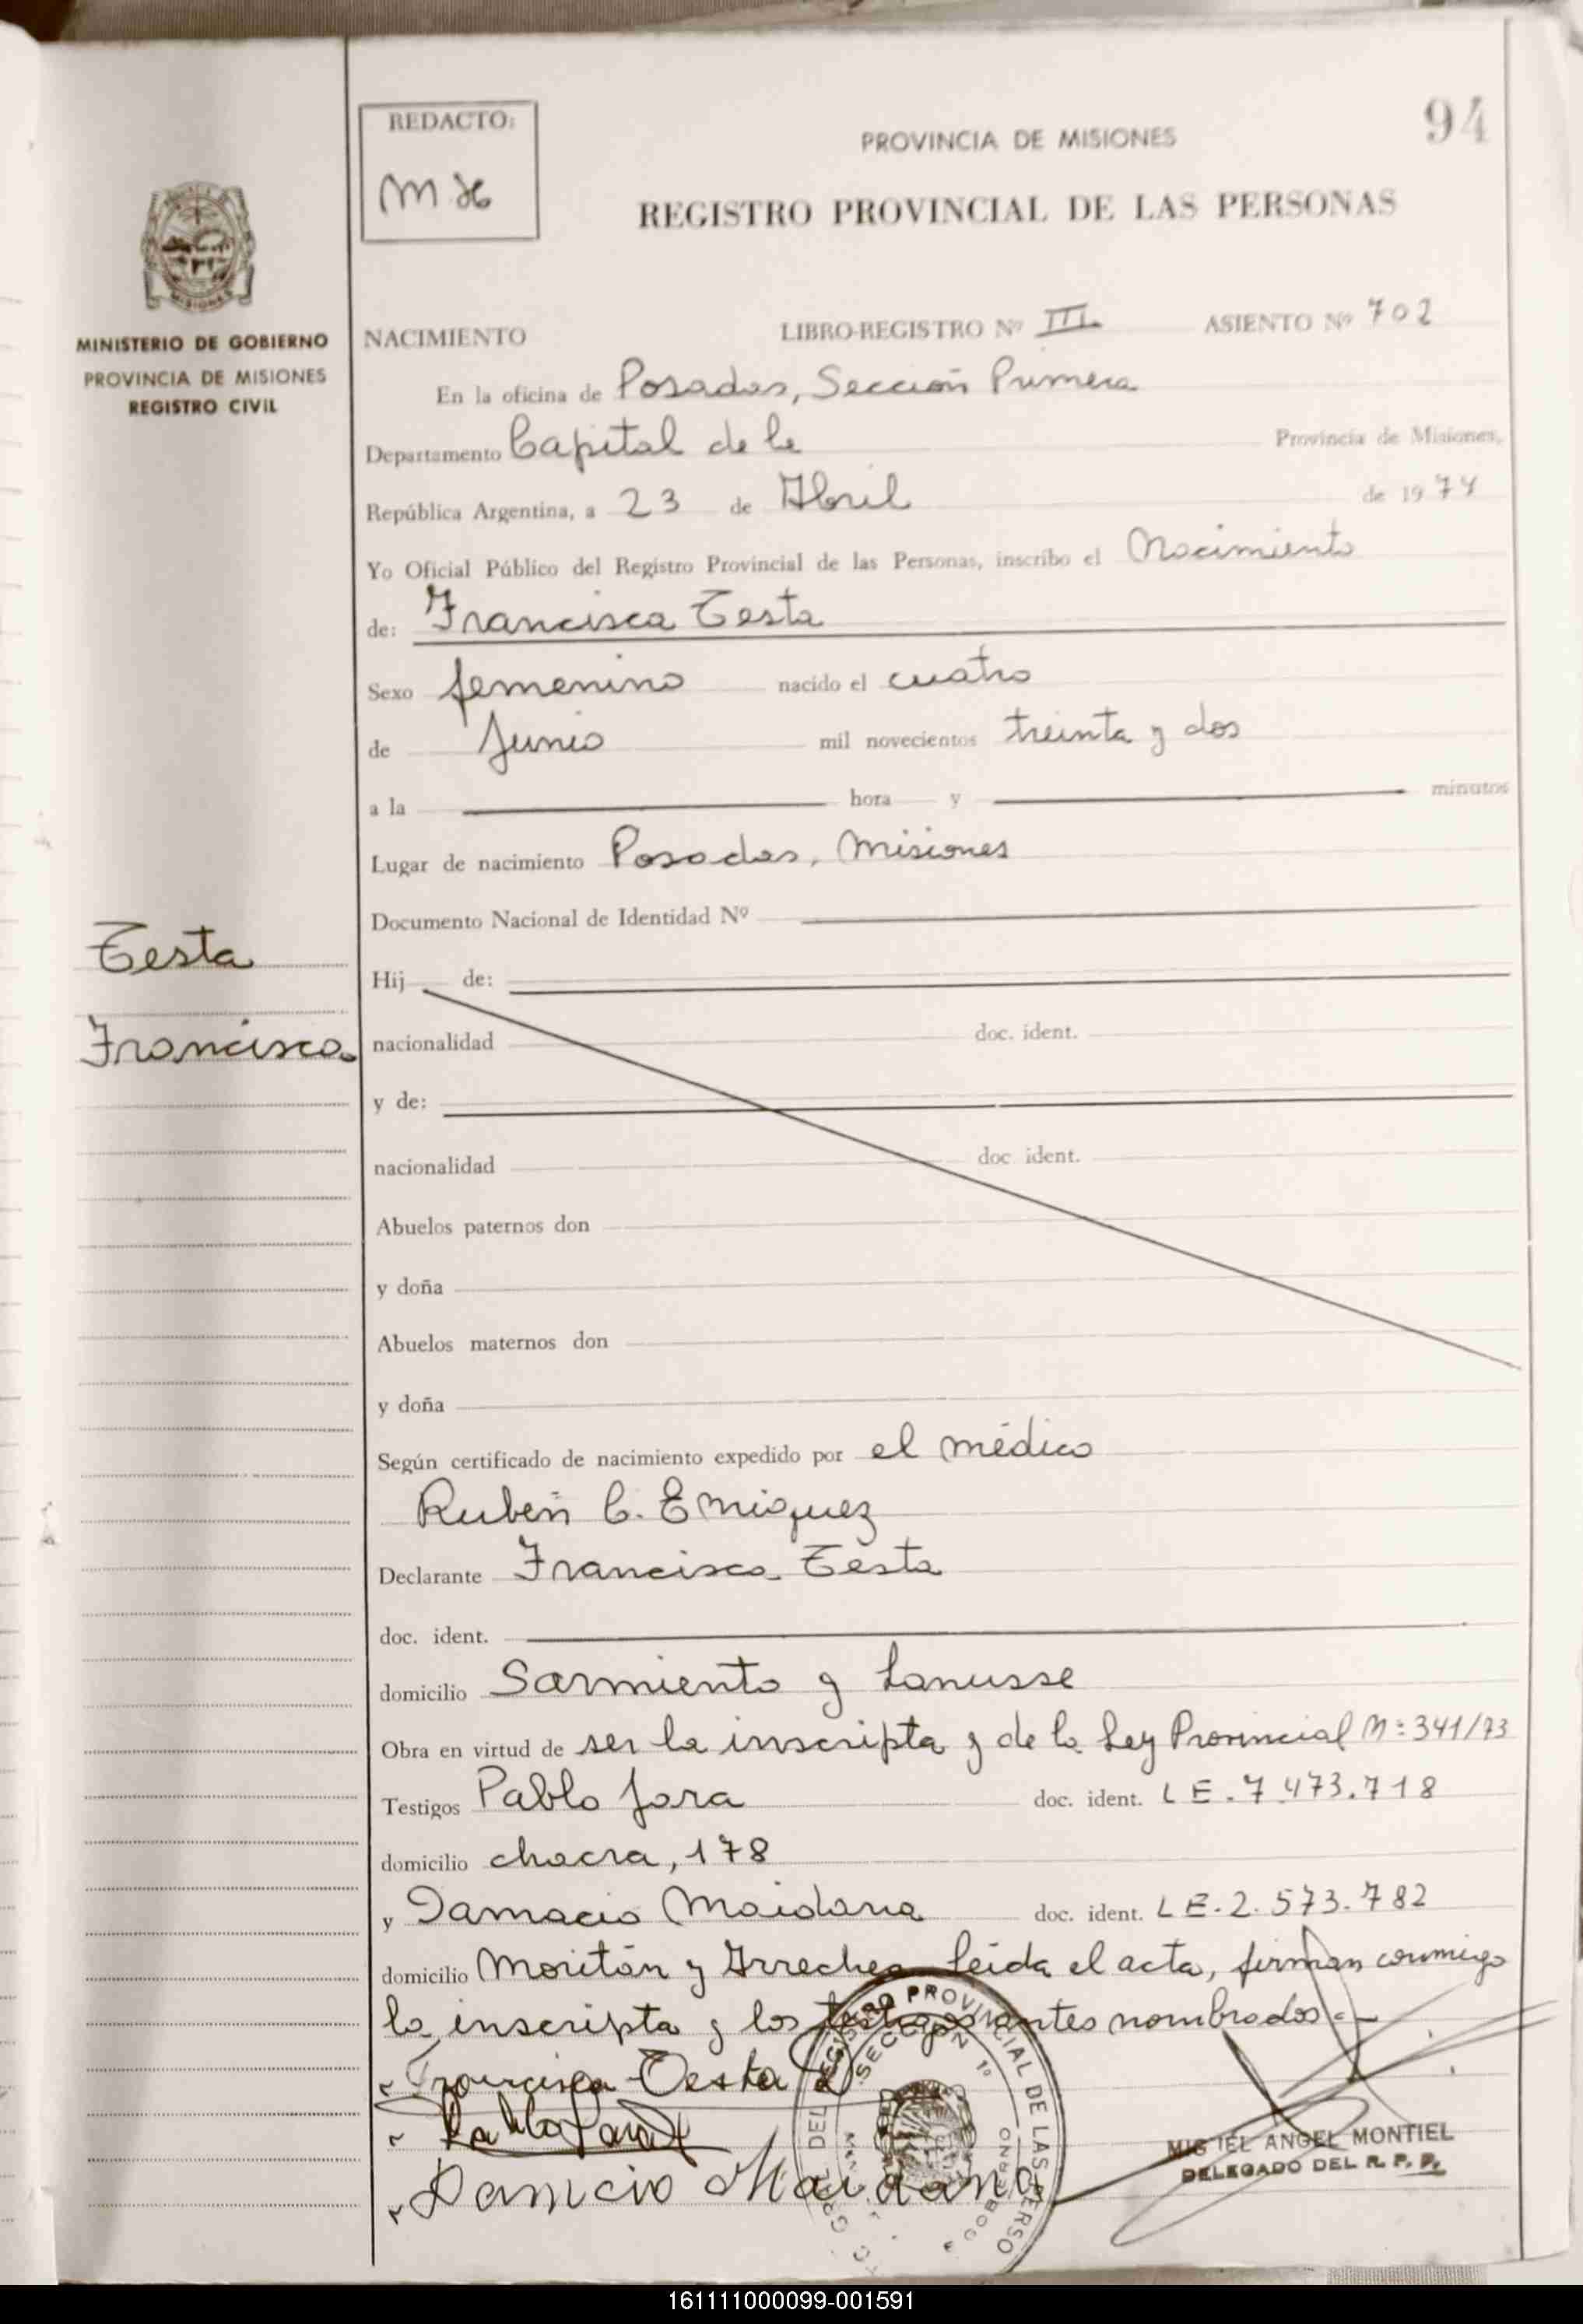 94
REDACTO:
PROVINCIA DE MISIONES
REGISTRO PROVINCIAL DE LAS PERSONAS
MISIONES
MINISTERIO DE GOBIERNO
PROVINCIA DE MISIONES
REGISTRO CIVIL
NACIMIENTO LIBRO-REGISTRO Nº III ASIENTO Nº 702
En la oficina de Posadas, Sección Primera
Departamento Capital de la Provincia de Misiones,
República Argentina, a 23 de Abril de 1974
Yo Oficial Público del Registro Provincial de las Personas, inscribo el Nacimiento
de: Francisca Testa
Sexo femenino nacido el cuatro
de Junio mil novecientos treinta y dos
a la hora y minutos
Lugar de nacimiento Posadas, Misiones
Documento Nacional de Identidad Nº
Testa
Hij de:
Francisca
nacionalidad doc. ident.
y de:
nacionalidad doc ident.
Abuelos paternos don
y doña
Abuelos maternos don
y doña
Según certificado de nacimiento expedido por el médico
Rubén C. Enriquez
Declarante Francisca Testa
doc. ident.
domicilio Sarmiento y Lanusse
Obra en virtud de ser la inscripta y de la Ley Provincial Nº 341/73
Testigos Pablo Jara doc. ident. L E. 7.473.718
domicilio chacra, 178
y Damacio Maidana doc. ident. L E. 2.573.782
domicilio Moritán y Arrechea Leida el acta, firman conmigo
la inscripta y los testigos antes nombrados.-
Francisca Testa
Pablo Jara
Damacio Maidana
REGISTRO PROVINCIAL DE LAS PERSO
SECCION 1º
GOBIERNO
MIGUEL ANGEL MONTIEL
DELEGADO DEL R. P. P.
161111000099-001591